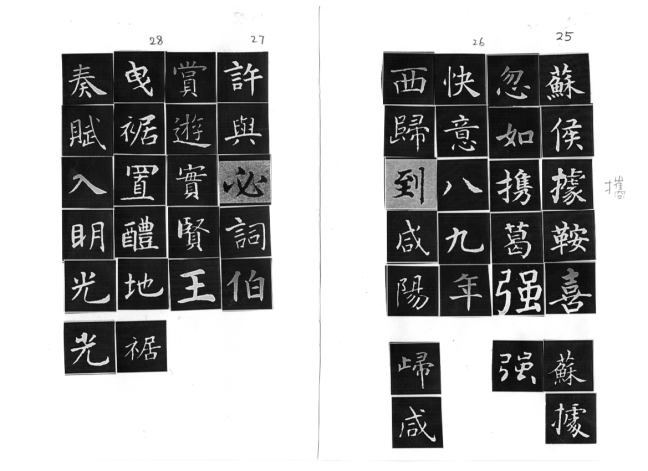 25
蘇侯據鞍喜
蘇據
忽如携葛强
强
26
快意八九年
西歸到咸陽
歸咸
27
許與必詞伯
賞遊實賢王
28
曳裾置醴地
裾
奏賦入明光
光